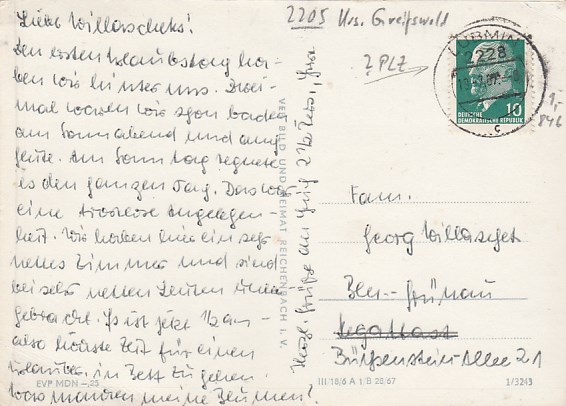 Liebe Willascheks!
Den ersten Urlaubstag ha-
ben wir hinter uns. Zwei-
mal waren wir schon baden
am Sonnabend und auch
heute. Am Sonntag regnete
es den ganzen Tag. Das war
eine trostlose Angelegen-
heit. Wir haben hier ein sehr
nettes Zimmer und sind
bei sehr netten Leuten unter-
gebracht. Es ist jetzt
also höchste Zeit für einen
Urlauber, in Bett zu gehen.
Was machen meine Blumen?
Herzl. Grüße an
VERLAG BILD UND HEIMAT REICHENBACH I. V.
EVP MDN -,25
2205 Krs. Greifswald
? PLZ
LUBMIN
228
c
10
DEUTSCHE
DEMOKRATISCHE REPUBLIK
1,-
846
Fam.
Georg Willaschek
Bln.- Grünau
Regattast
Büxenstein-Allee 21
III/18/6 A 1/B 28/67
1/3243